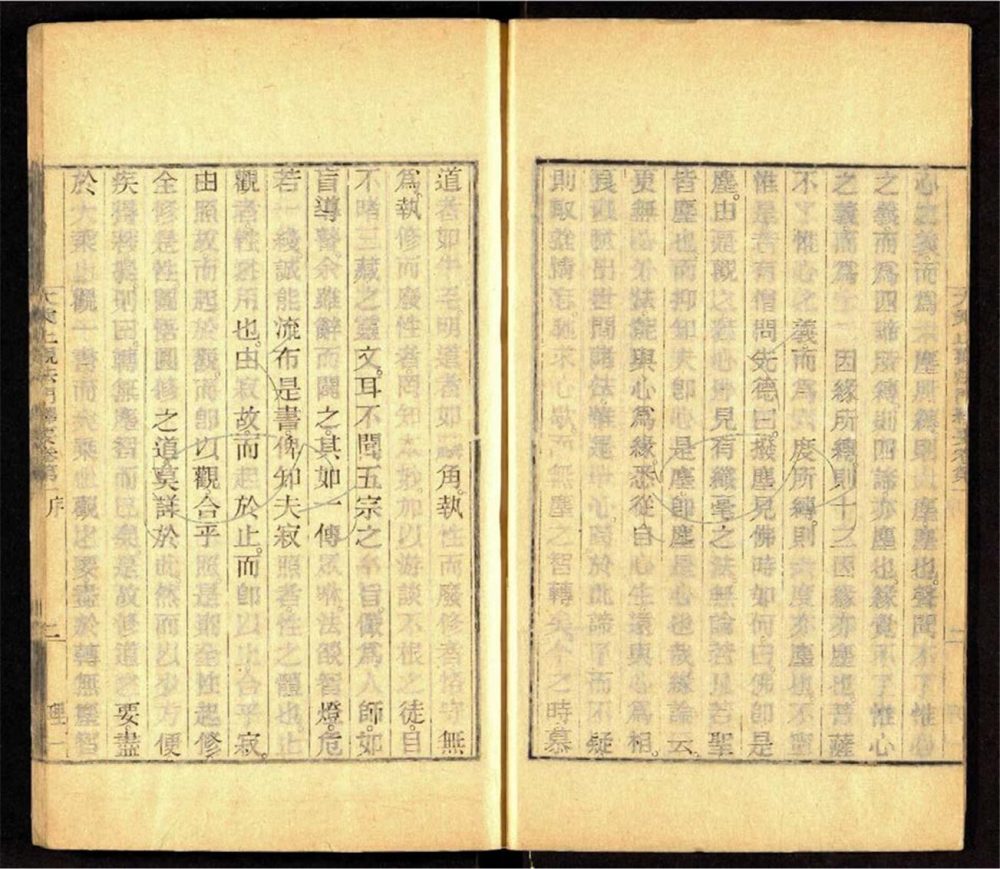 心之義而爲六塵所縛則六塵塵也。聲聞不了惟心
之義而爲四諦所縛則四諦亦塵也。緣覺不了惟心
之義而爲十二因緣所縛則十二因緣亦塵也菩薩
不了惟心之義而爲六度所縛。則六度亦塵也不寧
惟是昔有僧問先德曰。撥塵見佛時如何。曰。佛卽是
塵。由是觀之若心外見有纖毫之法無論若見若聖
皆塵也而抑知夫卽心是塵卽塵是心也哉緣論云。
更無心外法能與心爲緣悉從自心生還與心爲相。
世出世間諸法惟是一心苟於此諦了而不疑
則取捨情忘。馳求心歇。而無塵之智轉矣今之時慕
道者如牛毛。明道者如麟角。執性而廢修者恪守無
爲。執修而廢性者。罔知本妙。加以游談不根之徒。目
不睹三藏之靈文。耳不聞五宗之奧旨。儼爲人師。如
盲導瞽。余雖辭而闢之。其如一傳眾咻。法燄智燈。危
若一綫。誠能流布是書。俾知夫寂照者。性之體也。止
觀者性起用也。由寂故。而起於止。而卽以止合乎寂。
由照故而起於觀。而卽以觀合乎照。是則全性起修
全修是性。圓悟圓修之道莫詳於此。然而以少方便
疾得菩提。則曰。轉無塵智而已矣。是故修道之要盡
於大乘止觀一書而大乘止觀之要盡於轉無塵智
大乘止觀法門釋要卷第一 序 二